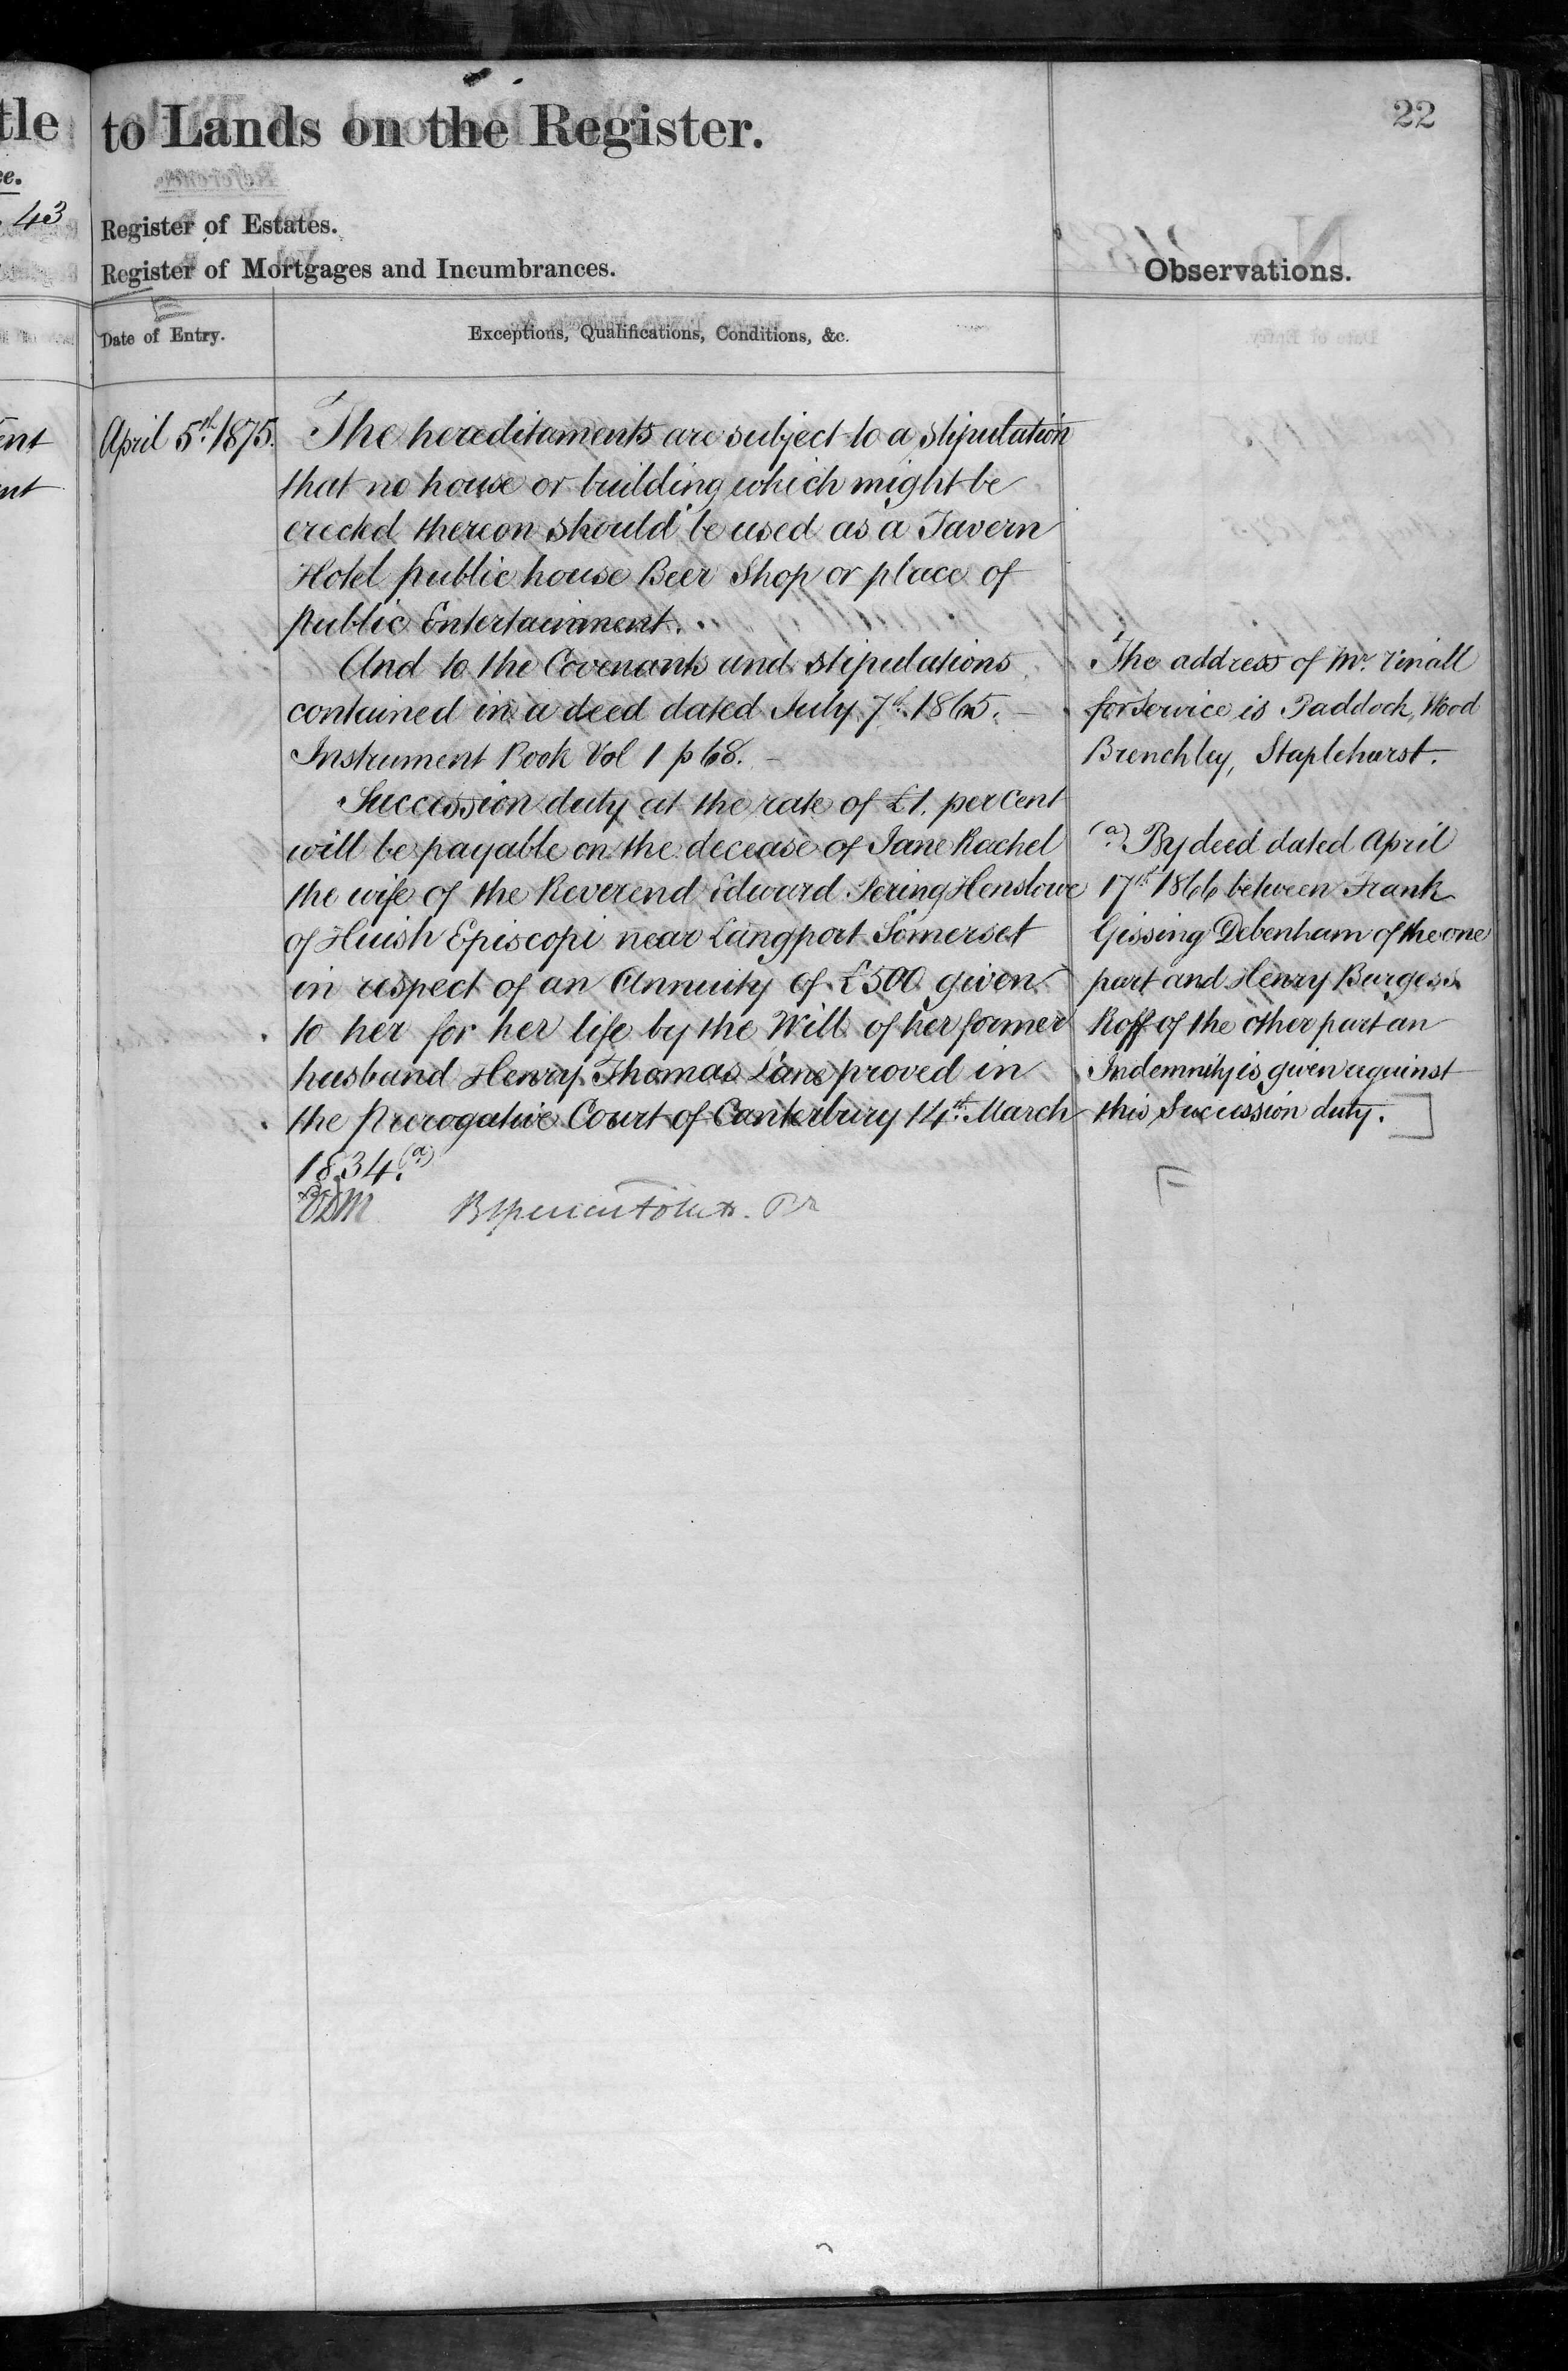 tle
to Lands on the Register.
22
ce.
43
Register of Estates.
Register of Mortgages and Incumbrances.
Observations.
Date of Entry.
Exceptions, Qualifications, Conditions, &c.
ent
nt
April 5th 1875.
The hereditaments are subject to a stipulation
that no house or building which might be
erected thereon should be used as a Tavern
Hotel public house Beer Shop or place of
public Entertainment.
And to the Covenants and stipulations
contained in a deed dated July 7th 1865.
Instrument Book Vol 1 p 68.
Succession duty at the rate of £1. per cent
will be payable on the decease of Jane Rachel
the wife of the Reverend Edward Pering Henslowe
of Huish Episcopi near Langport Somerset
in respect of an Annuity of £500 given
to her for her life by the Will of her former
husband Henry Thomas Lane proved in
the Prerogative Court of Canterbury 14th March
1834. (a)
The address of Mr.
for Service is Paddock, Wood
Brenchley, Staplehurst.
(a) By deed dated April
17th 1866 between Frank
Gissing Debenham of the one
part and Henry Burgess
Roff of the other part an
Indemnity is given against
this Succession duty.